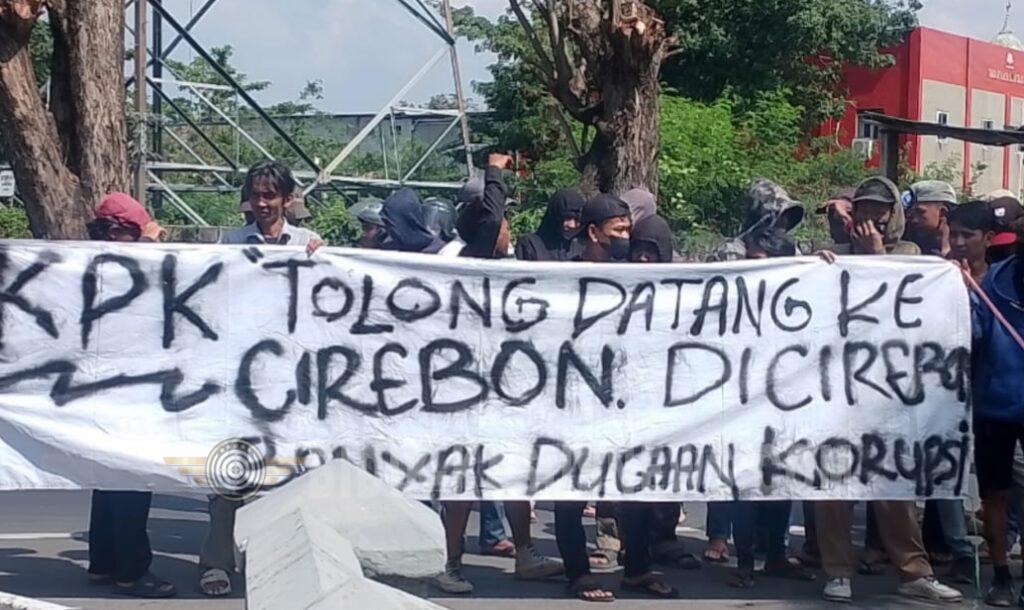 KPK "TOLONG DATANG KE
CIREBON. DICIREBON
BANYAK DUGAAN KORUPSI